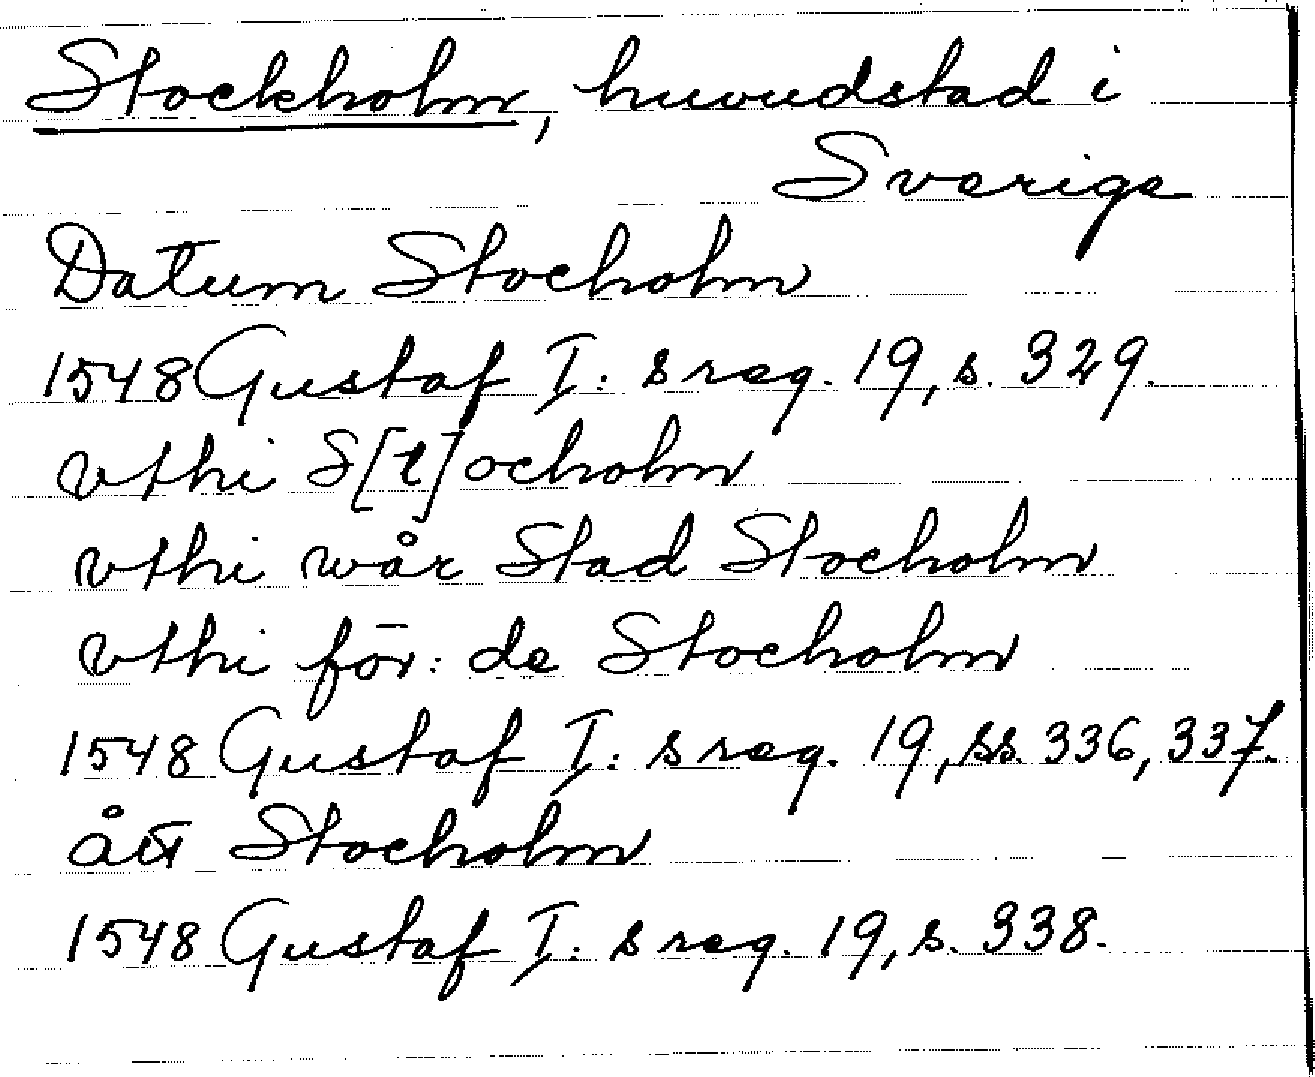 Stockholm, huvudstad i
Sverige
Datum Stocholm
1548 Gustaf I:s reg. 19, s. 329.
vthi S[t]ocholm
vthi wår Stad Stocholm
vthi för: de Stocholm
1548 Gustaf I:s reg. 19, ss. 336, 337.
ått Stocholm
1548 Gustaf I:s reg. 19, s. 338.